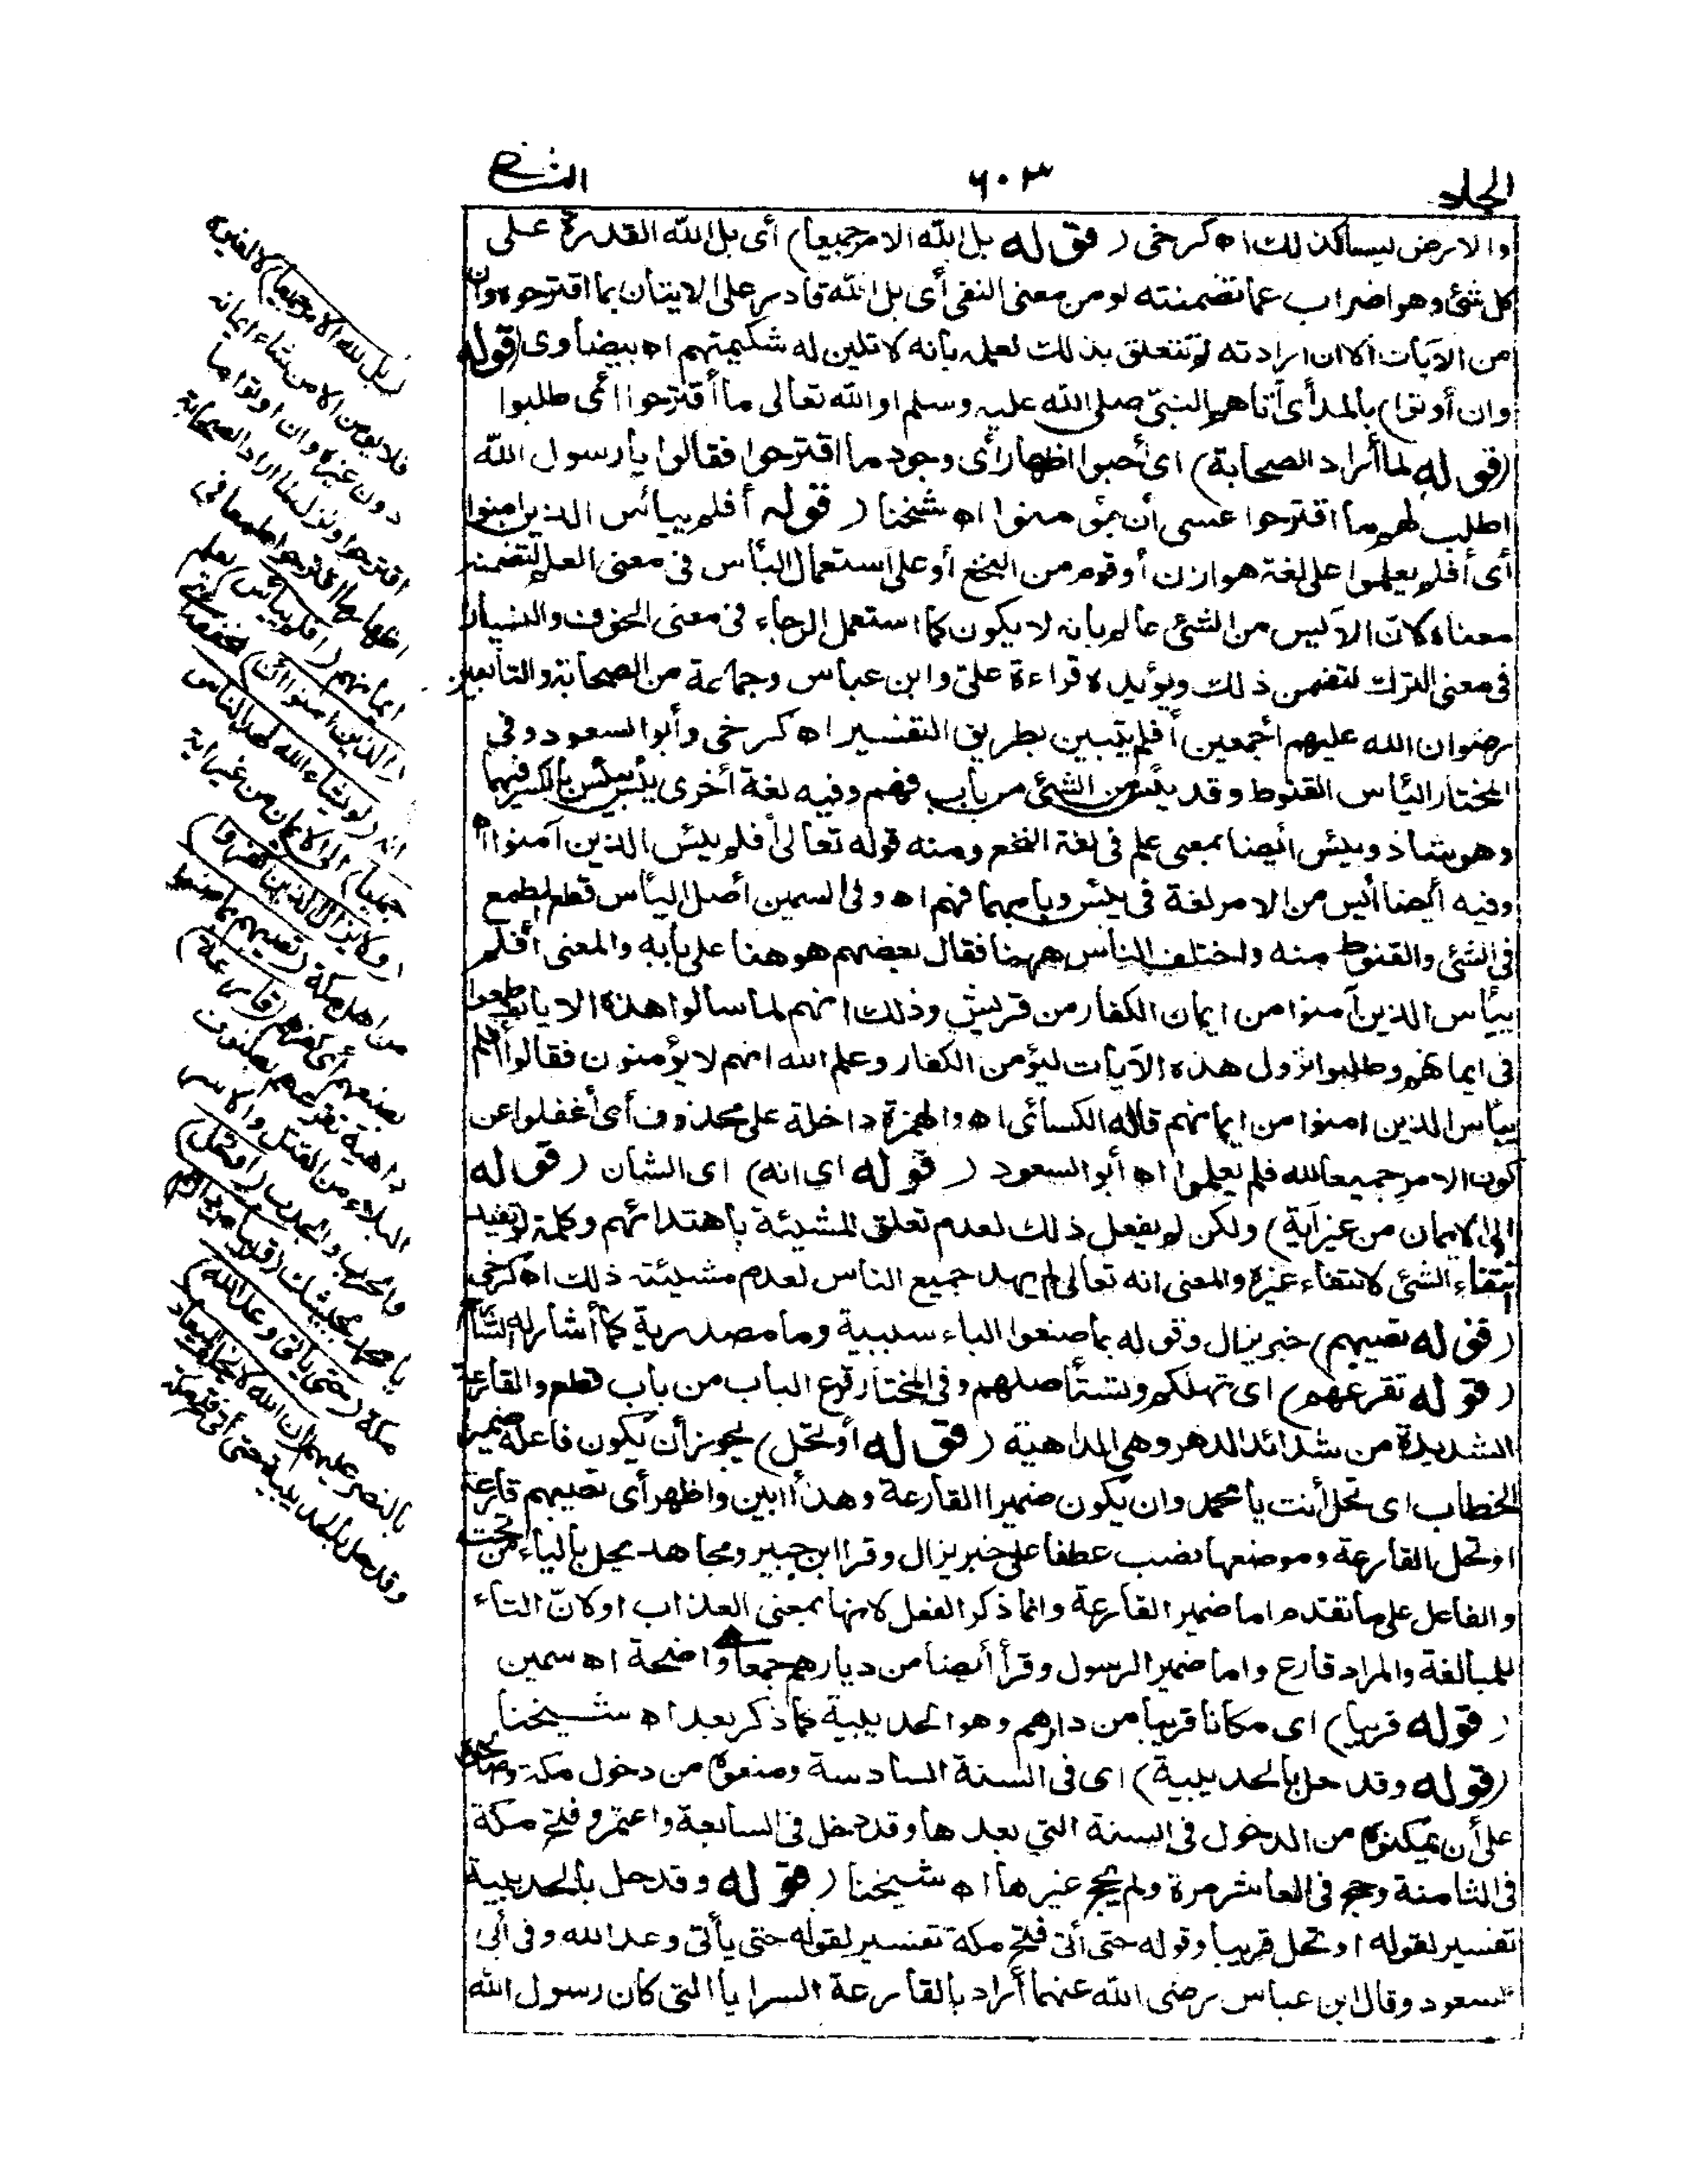 الجلد ٦٠٣ الشخ
والارض ليسا كذلك اه كرخى (قوله بل لله الامر جميعا) أى بل الله القدرة على
كل شئ وهو اضراب عما تضمنته لو من معنى النفى أى بل الله قادر على الاتيان بما اقترحوه وان
من الآيات الا ان ارادته لم تتعلق بذلك لعلمه بانه لا تلين له شكيمتهم اه بيضاوى (قوله
وان أوتوا) بالمد أى أتاهم النبى صلى الله عليه وسلم او الله تعالى ما أقترحوا أى طلبوا
(قوله لما أراد الصحابة) اى أحبوا اظهار أى وجود ما اقترحوا فقالوا يا رسول الله
اطلب لهم ما اقترحوا عسى أن يؤمنوا اه شيخنا (قوله أفلم ييائس الذين امنوا
أى أفلم يعلموا على لغة هوازن أو قوم من النخع أو على استعمال اليأس فى معنى العلم لتضمنه
معناه لان الآيس من الشئ عالم بانه لا يكون كما استعمل الرجاء فى معنى الخوف والنسيان
فى معنى الترك لتضمن ذلك ويؤيده قراءة على وابن عباس وجماعة من الصحابة والتابعين
رضوان الله عليهم أجمعين أفلم يتبين بطريق التفسير اه كرخى وأبو السعود وفى
المختار اليأس القنوط وقد يئس من الشئ من باب فهم وفيه لغة أخرى يئس ييئس بالكسر فيهما
وهو شاذ ويئس أيضا بمعنى علم فى لغة النخع ومنه قوله تعالى أفلم ييئس الذين آمنوا اه
وفيه أيضا أيس من الامر لغة فى يئس وبابهما فهم اه وفى السمين أصل اليأس قطع الطمع
فى الشئ والقنوط منه واختلف الناس ههنا فقال بعضهم هو هنا على بابه والمعنى أفلم
ييأس الذين آمنوا من ايمان الكفار من قريش وذلك انهم لما سألوا هذه الايات طمعوا
فى ايمانهم وطلبوا نزول هذه الآيات ليؤمن الكفار وعلم الله انهم لا يؤمنون فقالوا أفلم
ييأس الذين امنوا من ايمانهم قاله الكسائى اه والهمزة داخلة على محذوف أى أغفلوا عن
كون الامر جميعا لله فلم يعلموا اه أبو السعود (قوله اى انه) اى الشان (قوله
الى الايمان من غير آية) ولكن لم يفعل ذلك لعدم تعلق المشيئة باهتدائهم وكلمة لو تفيد
انتفاء الشئ لانتفاء غيره والمعنى انه تعالى لم يهد جميع الناس لعدم مشيئته ذلك اه كرخى
(قوله تصيبهم) خبر يزال وقوله بما صنعوا الباء سببية وما مصدرية كما أشار له الشارح
(قوله تقرعهم) اى تهلكهم وتستأصلهم وفى المختار قرع الباب من باب قطع والقارعة
الشديدة من شدائد الدهر وهى الداهية (قوله أو تحل) يجوز أن يكون فاعله ضمير
الخطاب اى تحل أنت يا محمد وان يكون ضمير القارعة وهذا أبين واظهر أى تصيبهم قارعة
او تحل القارعة وموضعها نصب عطفا على خبر يزال وقرا ابن جبير ومجاهد يحل بالياء من تحت
والفاعل على ما تقدم اما ضمير القارعة وانما ذكر الفعل لانها بمعنى العذاب او لان التاء
للمبالغة والمراد قارع واما ضمير الرسول وقرأ أيضا من ديارهم جمعا واضحة اه سمين
(قوله قريبا) اى مكانا قريبا من دارهم وهو الحديبية كما ذكر بعد اه شيخنا
(قوله وقد حل بالحديبية) اى فى السنة السادسة ومنعوه من دخول مكة وصالحوه
على أن يمكنوه من الدخول فى السنة التى بعدها وقد دخل فى السابعة واعتمر وفتح مكة
فى الثامنة وحج فى العاشر مرة ولم يحج غيرها اه شيخنا (قوله وقد حل بالحديبية
تفسير لقوله او تحل قريبا وقوله حتى أتى فتح مكة تفسير لقوله حتى يأتى وعد الله وفى أبى
السعود وقال ابن عباس رضى الله عنهما أراد بالقارعة السرايا التى كان رسول الله
(بل لله الامر جميعا) لا لغيره
فلا يؤمن الا من شاء ايمانه
دون غيره وان اوتوا ما
اقترحوا ونزل لما اراد الصحابة
اظهار ما اقترحوا طمعا فى
ايمانهم (افلم ييأس) يعلم
(الذين امنوا ان) مخففة اى
انه (لو يشاء الله لهدى الناس
جميعا) الى الايمان من غير اية
(ولا يزال الذين كفروا)
من اهل مكة (تصيبهم بما صنعوا
بصنعهم أى كفرهم (قارعة)
داهية تقرعهم بصنوف
البلاء من القتل والاسر
والحرب والجدب (او تحل)
يا محمد بجيشك (قريبا من دارهم
مكة (حتى يأتى وعد الله)
بالنصر عليهم (ان الله لا يخلف الميعاد
وقد حل بالحديبية حتى أتى فتح مكة